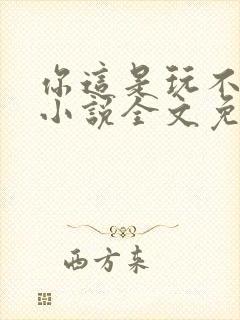 你這是玩不
小說全文免
西方来